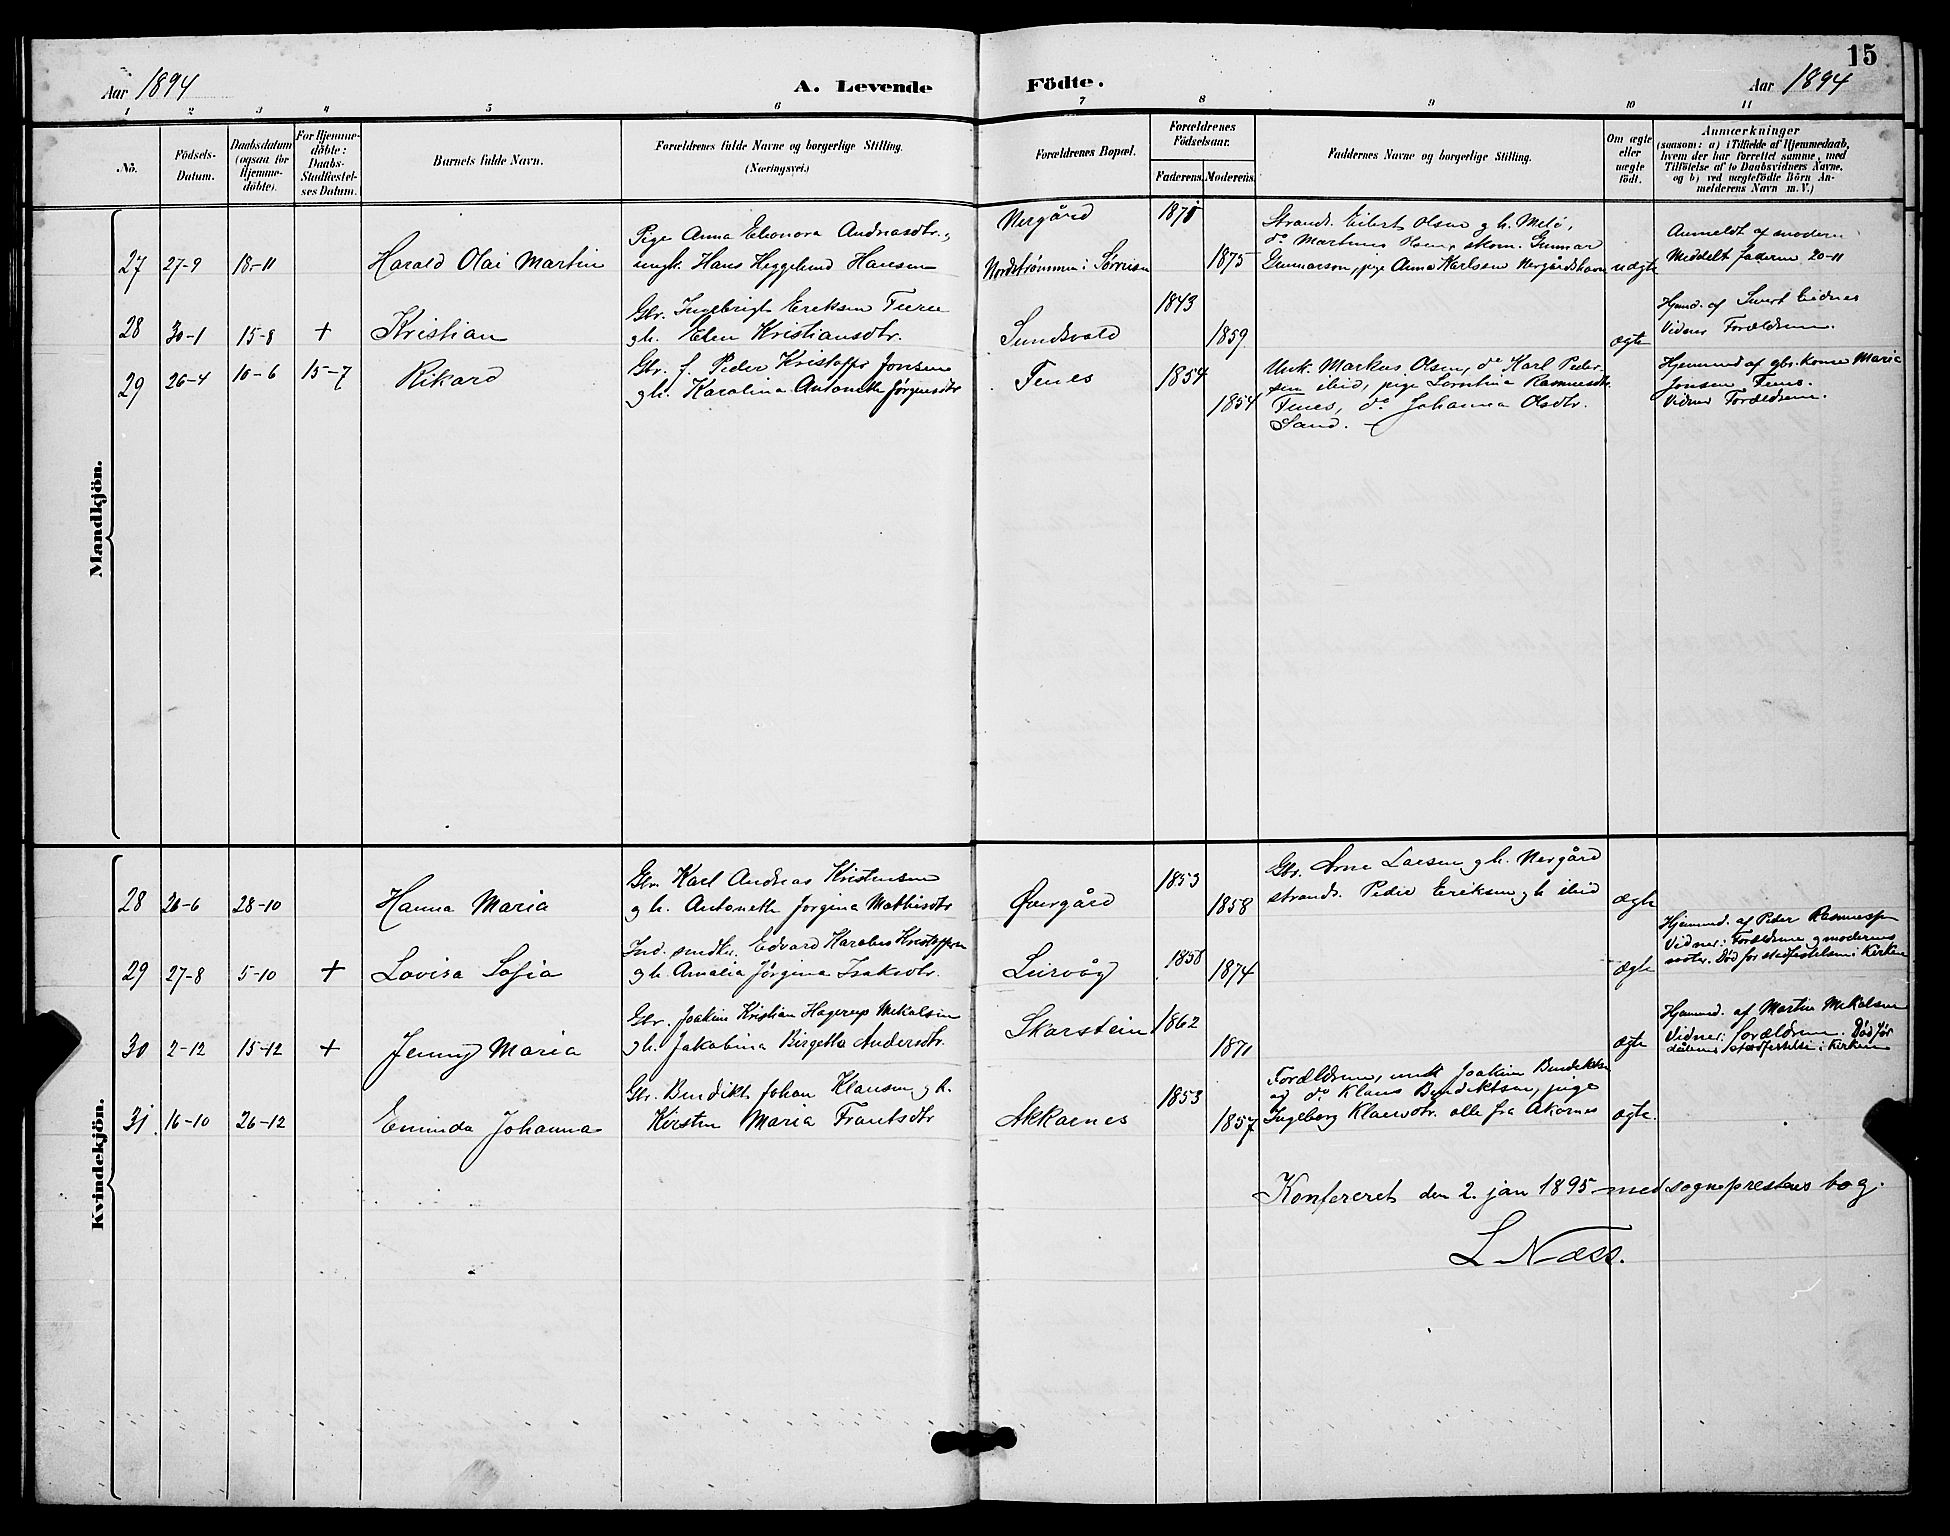 15
Aar 1894
A. Levende
Födte.
Aar 1894
1 2 3 4 5 6 7 8 9 10 11
No.
Födsels-
Datum.
Daabsdatum
(ogsaa for
Hjemme-
döbte).
For Hjemme-
döbte:
Daabs-
Stadfæstel-
ses Datum.
Barnets fulde Navn.
Forældrenes fulde Navne og borgerlige Stilling.
(Næringsvei.)
Forældrenes Bopæl.
Forældrenes
Födselsaar.
Faderens. Moderens.
Faddernes Navne og borgerlige Stilling.
Om ægte
eller
uægte
födt.
Anmærkninger
(saasom: a) i Tilfælde af Hjemmedaab,
hvem der har forrettet samme, med
Tilföielse af to Daabsvidners Navne,
og b) ved uægtefödte Börn An-
melderens Navn m. V.)
Mandkjön.
27 27-9 18-11 Harald Olai Martin
Pige Anna Eleonora Andreasdtr.,
ungk. Hans Heggelund Hansen
Nergård
Nordstrømmen i Sørreisa
1871
1875
Strands. Eibert Olsen g h. Melø,
do Martinus Olsen, skom. Gunnar
Gunnarson, pige Anna Karlssen Nergårdshavn
uægte
Anmeldt af moderen
Meddelt faderen 20-11
28 30-1 15-8 + Kristian
Gbr. Ingebrigt Eriksen
gh. Elen Kristiansdtr.
Sundsvold
1843
1859
ægte
Hjemd. af Sivert Eidnes
Vidner Forældrene.
29 26-4 10-6 15-7 Rikard
Gbr. f. Peder Kristoffer Jonsen
gh. Karolina Antonette Jørgensdtr
Finnes
1854
1854
Unk. Markus Olsen, do Karl Peder-
sen ibid, pige Lorentina Rasmusdtr.
do Johanna Olsdtr.
Sand.
Hjemmed af gbr. kone Maria
Jonsen
Vidner Forældrene.
Kvindekjön.
28 26-6 28-10 Hanna Maria
Gbr. Karl Andreas Kristensen
gh. Antonette Jørgina Mathisdtr
Øvergård
1853
1858
Gbr. Arne Larsen g h. Nergård
strands. Peder Eriksen g h ibid
ægte
29 27-8 5-10 + Lovisa Sofia
Ind. Edvard Karolus Kristoffersen
gh. Amalia Jørgina Isaksdtr.
Leirvåg
1858
1874
ægte
Hjemmed. af Peder Rasmussen
Vidner: Forældrene g moderens
moder. Død før stadfestelsen i Kirken
30 2-12 15-12 + Jenny Maria
Gbr. Joakim Kristian Hagerup Mikalsen
gh. Jakobina Birgette Andersdtr.
Skarstein
1862
1871
ægte
Hjemmed. af Martin Mikalsen
Vidner: forældrene. Død før
dåbens stadfestelse i Kirken
31. 16-10 26-12 Eminda Johanna
Gbr. Bendikt Johan Klausen g h.
Kirsten Maria Frantsdtr
Akkarnes
1853
1857
Forældrene, unk Joakim Bendiktsen
og do Klaus Bendiktsen, pige
Ingeborg Klausdtr. alle fra Akarnes
ægte.
Konfereret den 2. jan 1895 med sogneprestens bog.
L Næss.